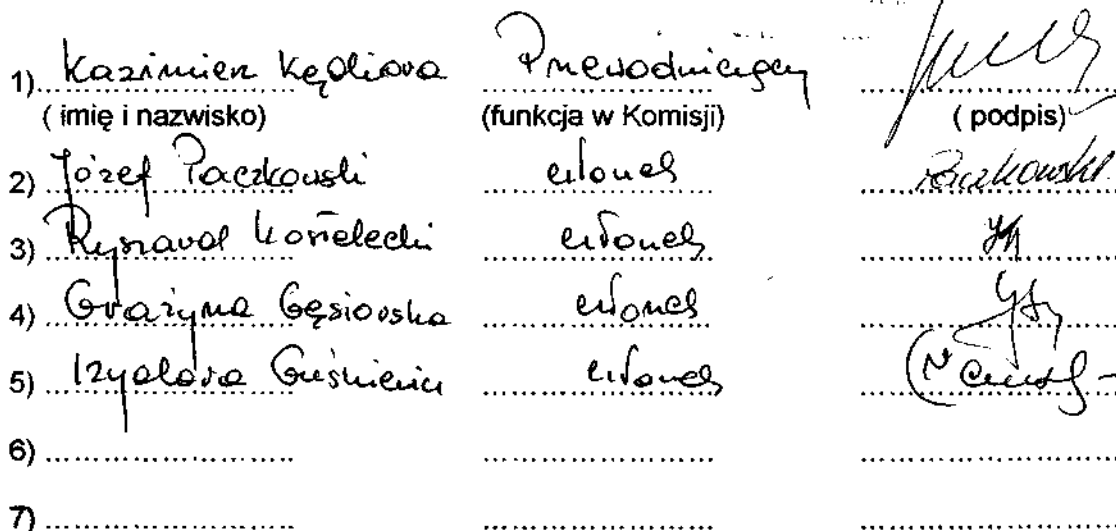 1) Kazimierz Kędziora Przewodniczący
( imię i nazwisko) (funkcja w Komisji) ( podpis)
2) Józef Paczkowski członek Paczkowski
3) Ryszard Kosielecki członek
4) Grażyna Gęsiorska członek
5) Izydora członek
6)
7)